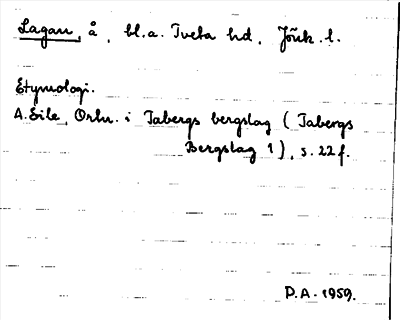 Lagan, å, bl.a. Tveta hd, Jönk. l.
Etymologi.
A. Eile, Ortn. i Tabergs bergslag (Tabergs
Bergslag 1), s. 22 f.
D.A. 1959.